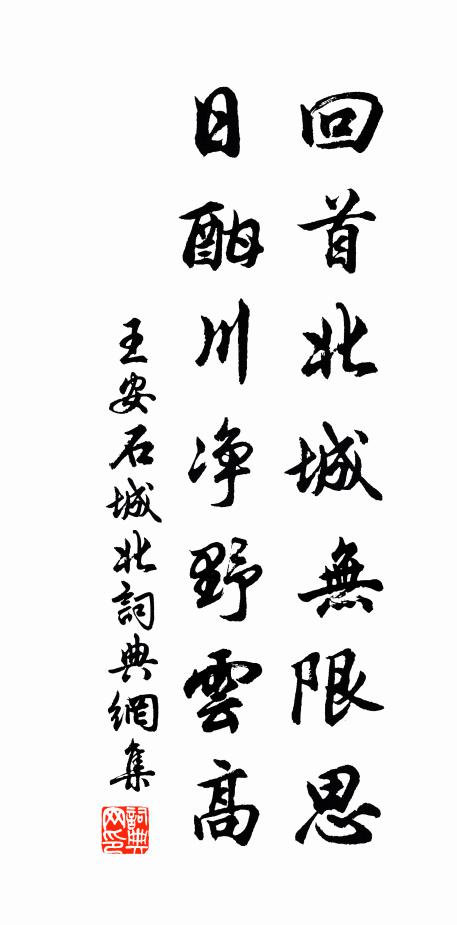 回首北城無限思
日酣川净野雲高
王安石城北詞典網集
詞典网印